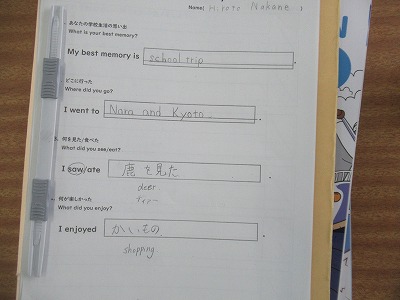 Name( Hiroto Nakane )
. あなたの学校生活の思い出
What is your best memory?
My best memory is school trip .
. どこに行った
Where did you go?
I went to Nara and Kyoto .
3. 何を見た/食べた
What did you see/eat?
I saw/ate 鹿を見た .
deer
ディアー
. 何が楽しかった
What did you enjoy?
I enjoyed かいもの .
shopping